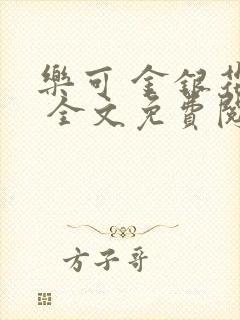 樂可 金銀花
全文免費閱
方子哥